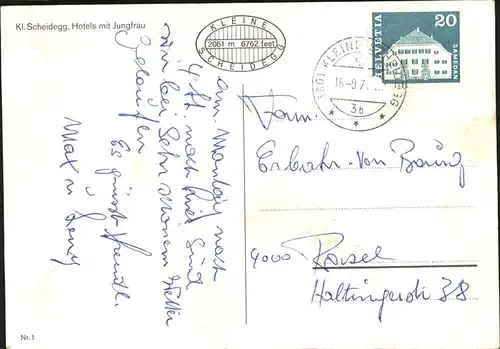 Kl. Scheidegg, Hotels mit Jungfrau
KLEINE
2061 m 6762 feet
SCHEIDEGG
HELVETIA
20
SAMEDAN
3801 KLEINE SCHEIDEGG
16-9.7
3b
am Montag nach
4 St. nach hier sind
wir bei sehr schönem Wetter
gelaufen
Es grüsst freundl.
Max u
Fam.
Erbahr-von
4000 Basel
Haltingerstr 38
Nr. 1